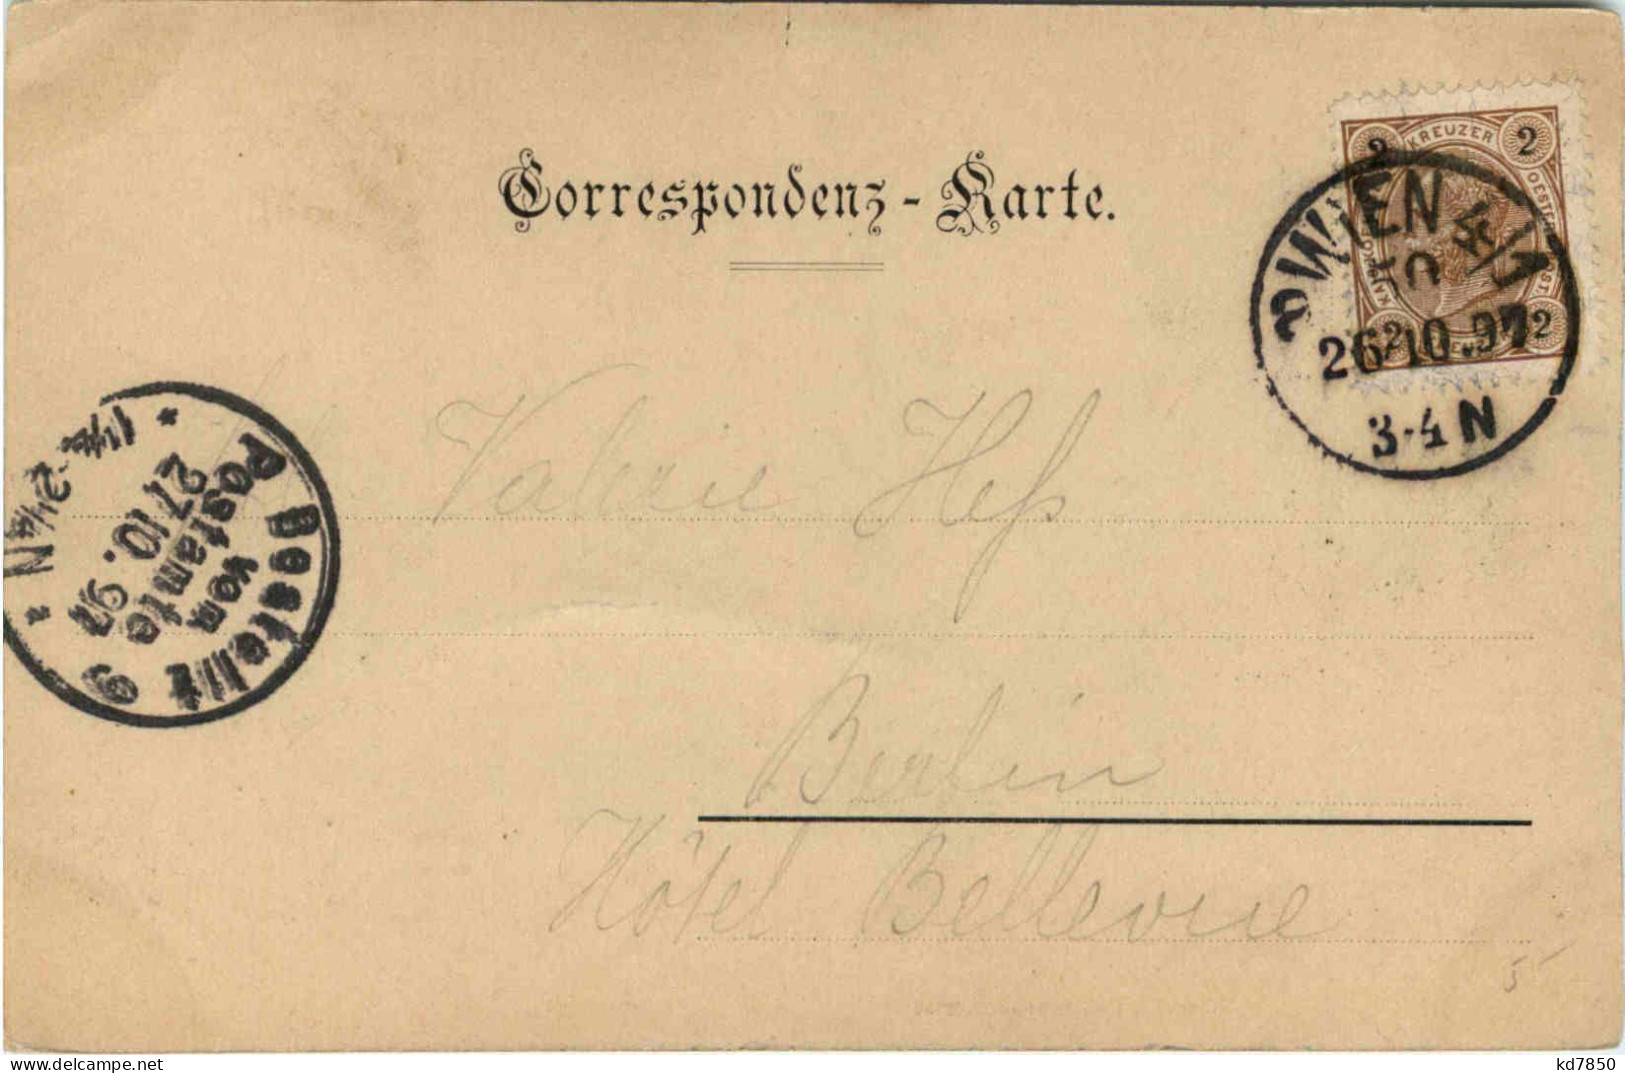 Correspondenz-Karte.
KREUZER
2 2
2 2
WIEN 4/1
26.10.97
3-4 N
Bestellt
vom
Postamte 9
27/10. 97
1½-2¼N
Valerie Heß
Berlin
Hôtel Bellevue
5
akpool.de
kd7850